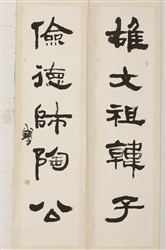 雄文祖韓子
儉德師陶公